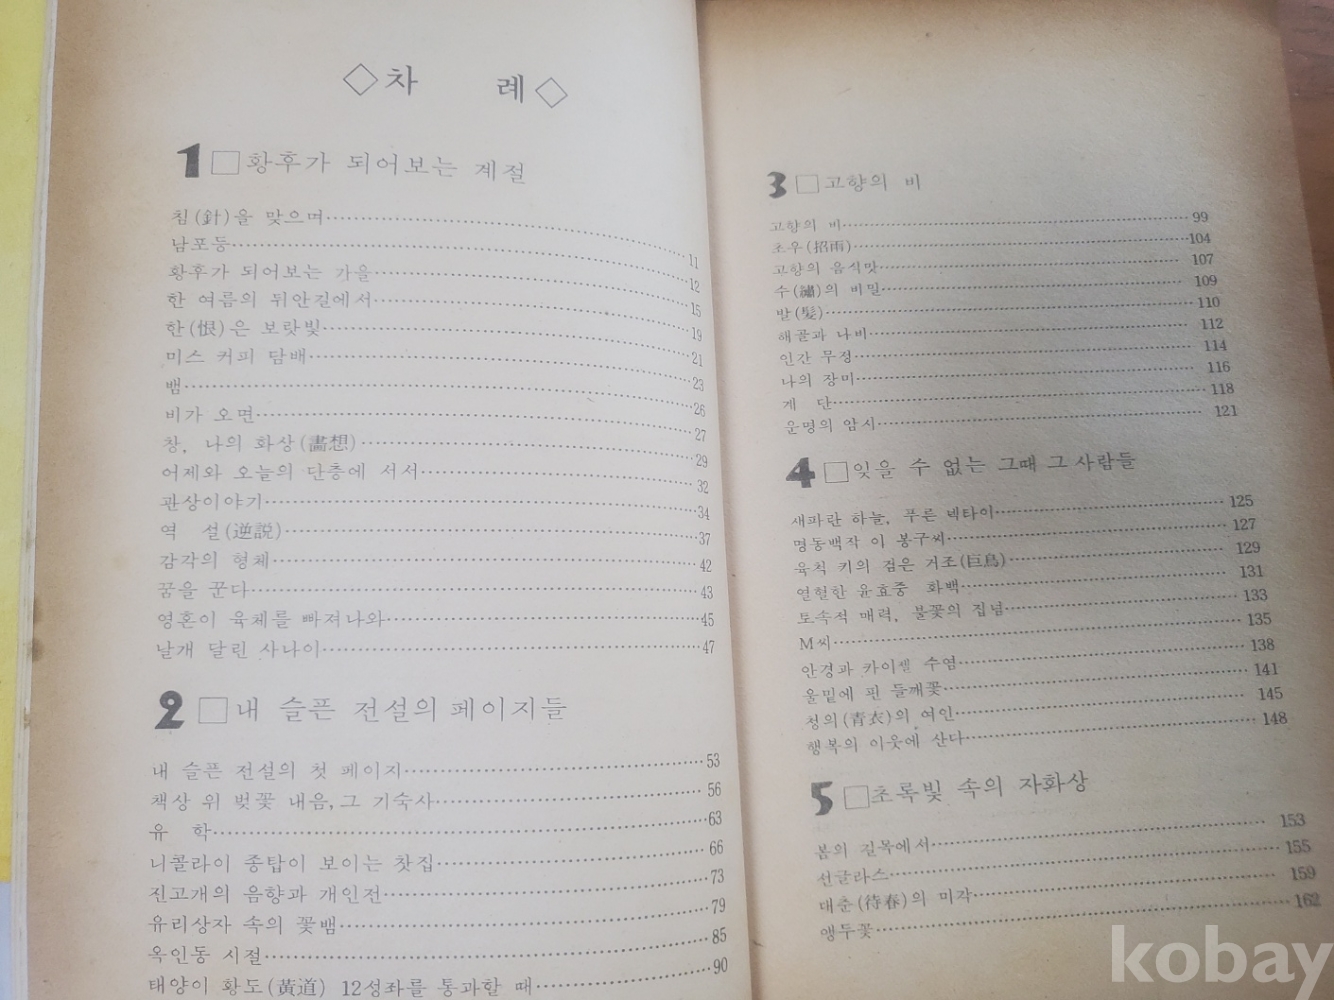 ◇차 례◇
1 □황후가 되어보는 계절
침(針)을 맞으며 11
남포등 12
황후가 되어보는 가을 15
한 여름의 뒤안길에서 19
한(恨)은 보랏빛 21
미스 커피 담배 23
뱀 26
비가 오면 27
창, 나의 화상(畵想) 29
어제와 오늘의 단층에 서서 32
관상이야기 34
역 설(逆說) 37
감각의 형체 42
꿈을 꾼다 43
영혼이 육체를 빠져나와 45
날개 달린 사나이 47
2 □내 슬픈 전설의 페이지들
내 슬픈 전설의 첫 페이지 53
책상 위 벚꽃 내음, 그 기숙사 56
유 학 63
니콜라이 종탑이 보이는 찻집 66
진고개의 음향과 개인전 73
유리상자 속의 꽃뱀 79
옥인동 시절 85
태양이 황도(黃道) 12성좌를 통과할 때 90
3 □고향의 비
고향의 비 99
초우(招雨) 104
고향의 음식맛 107
수(繡)의 비밀 109
발(髮) 110
해골과 나비 112
인간 무정 114
나의 장미 116
계 단 118
운명의 암시 121
4 □잊을 수 없는 그때 그 사람들
새파란 하늘, 푸른 넥타이 125
명동백작 이 봉구씨 127
육척 키의 검은 거조(巨鳥) 129
열혈한 윤효중 화백 131
토속적 매력, 불꽃의 집념 133
M씨 135
안경과 카이젤 수염 138
울밑에 핀 들깨꽃 141
청의(靑衣)의 여인 145
행복의 이웃에 산다 148
5 □초록빛 속의 자화상
봄의 길목에서 153
선글라스 155
대춘(待春)의 미각 159
앵두꽃 162
kobay